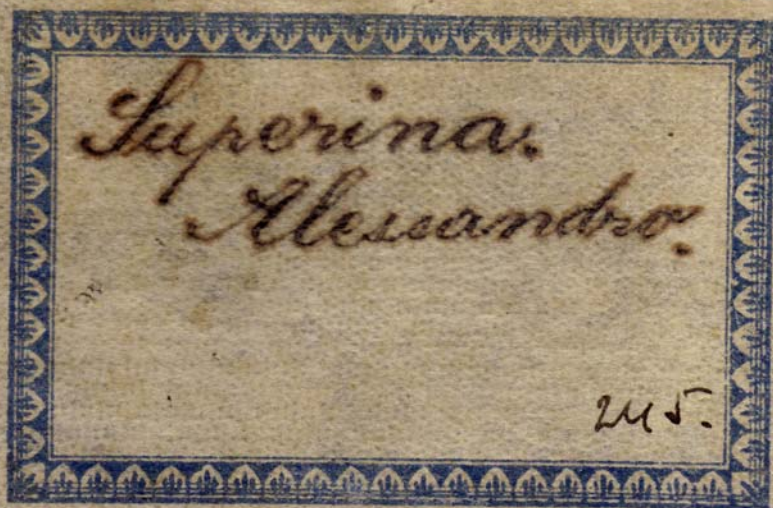 Superina.
Alessandro.
245.